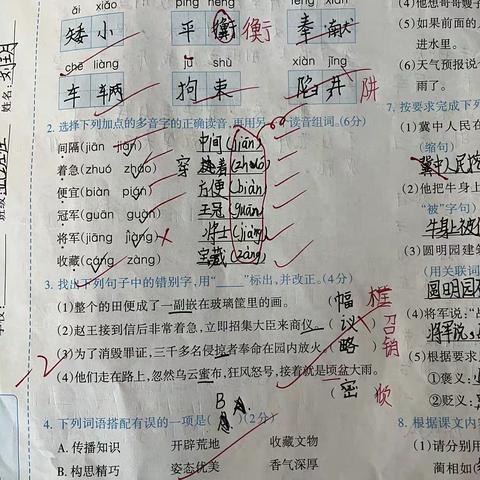 ǎi xiǎo píng héng fèng xiàn
矮小 平衡 衡 奉献
chē liàng jū shù xiàn jǐng
车辆 拘束 陷井 阱
2. 选择下列加点的多音字的正确读音,再用另一个读音组词。(6分)
间隔(jiān jiàn) 中间(jiān)
着急(zhuó zháo) 穿着(zhuó)
便宜(biàn pián) 方便(biàn)
冠军(guān guàn) 王冠(guān)
将军(jiāng jiàng) 将士(jiàng)
收藏(cáng zàng) 宝藏(zàng)
3. 找出下列句子中的错别字,用“____”标出,并改正。(4分)
(1)整个的田便成了一副嵌在玻璃筐里的画。(幅) 框
(2)赵王接到信后非常着急,立即招集大臣来商仪。(议) 召
(3)为了消毁罪证,三千多名侵掠者奉命在园内放火。(略) 销
(4)他们走在路上,忽然乌云蜜布,狂风怒号,接着就是顷盆大雨。(密) 倾
-2
4. 下列词语搭配有误的一项是( B )(2分)
A. 传播知识 开辟荒地 收藏文物
B. 构思精巧 姿态优美 香气深厚
(4)他想哥哥嫂子
(5)如果前面的人
进水里。
(6)天气预报说
雨了。
7. 按要求完成下列
(1)冀中人民在
(缩句)
冀中人民挖
(2)他把牛身上
“被”字句)
牛身上被
(3)圆明园建筑
(用关联词
圆明园
(4)将军说:“
将军说,
(5)根据要求
①褒义:
②贬义:
8. 根据课文内容
(1)请分别用
蔺相如(
姓名:
班级
学校: